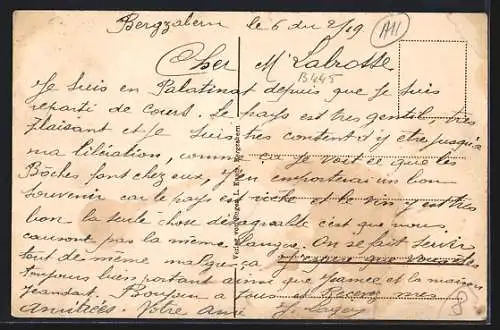 Bergzabern le 6 du 2/19
A11
Cher Mr Labrosse
B445
Je suis en Palatinat depuis que Je suis
reparti de court. Le pays est tres gentil tres
plaisant et Je suis tres content d'y etre jusqu'a
ma libération, comme ca Je vois ce que les
Bôches font chez eux, J'en emporterai un bon
souvenir car le pays est riche et le vin y est tres
bon la seule chose desagreable c'est que nous
causont pas la même langue. On se fait servir
tout de même malgre ça J'espere que vous etes
toujours bien portant ainsi que Jeanne et la maison
Jeandart. Bonjour a tous et Recevez mes
Amitiées. Votre ami
Verlag von Bergzabern